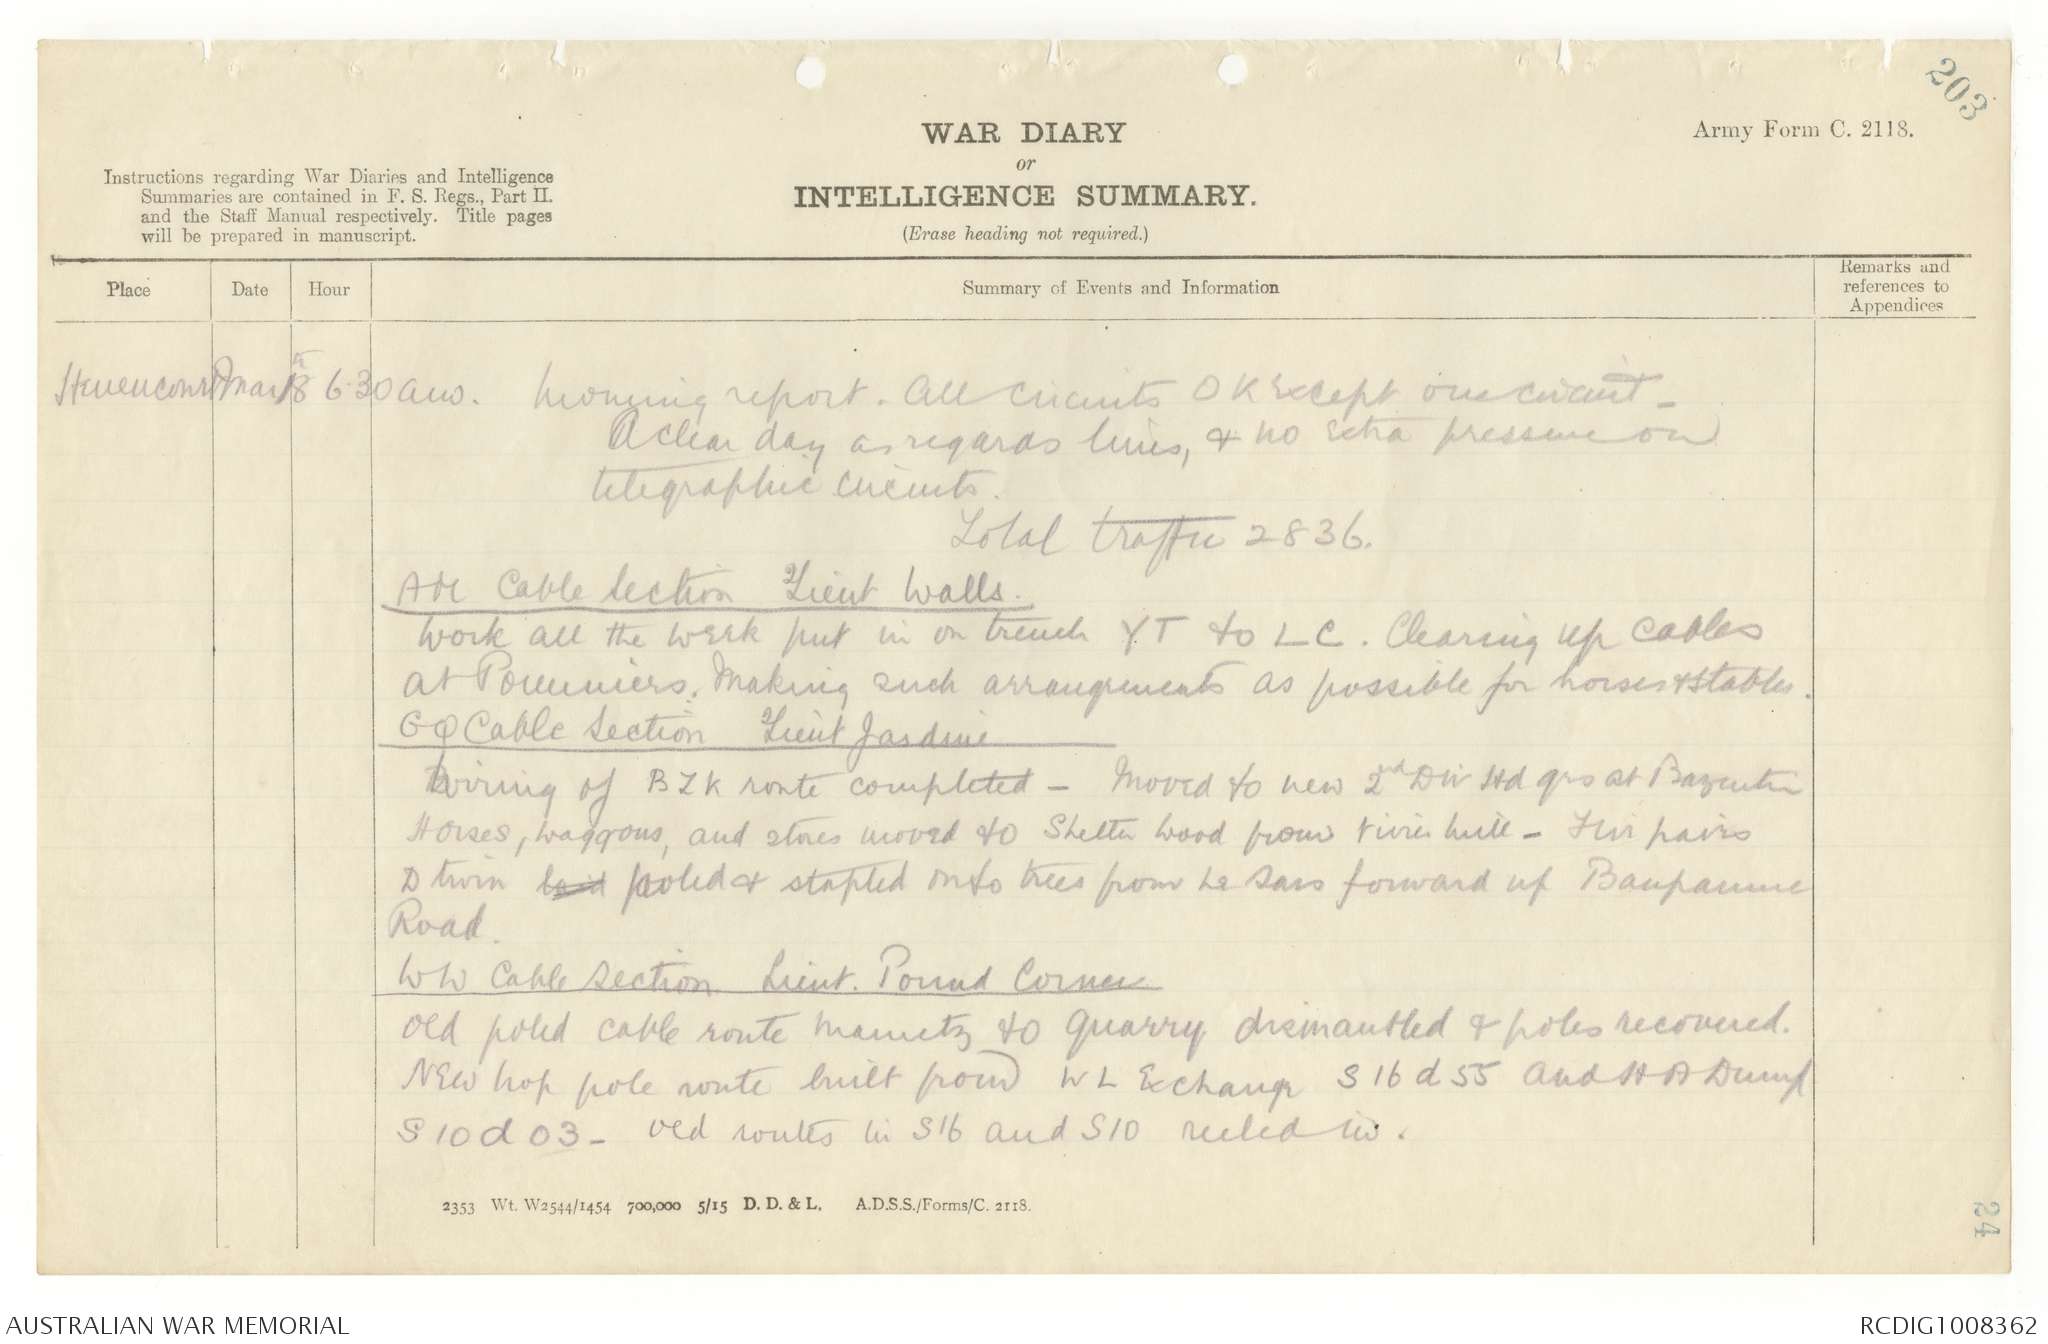 203
Army Form C. 2118.
WAR DIARY
or
INTELLIGENCE SUMMARY.
(Erase heading not required.)
Instructions regarding War Diaries and Intelligence
Summaries are contained in F. S. Regs., Part II.
and the Staff Manual respectively. Title pages
will be prepared in manuscript.
Place
Date
Hour
Summary of Events and Information
Remarks and
references to
Appendices
Henencourt Mar 18th 6.30 am. Morning report. All circuits OK Except one circuit -
A clear day as regards lines, & no Extra pressure on
telegraphic circuits.
Total traffic 2836.
Cable Section Lieut Walls.
Work all the week put in on trench YT to LC. Clearing up cables
at Pommiers. Making such arrangements as possible for horses & stables.
GQ Cable Section Lieut Jardine
Wiring of BZK route completed - Moved to new 2nd Div Hd qrs at Bazentin
Horses, waggons, and stores moved to Shelter Wood from - pairs
D twin laid poled & stapled onto trees from Le Sars forward up Baupaume
Road.
WW Cable Section. Lieut. Pound Corner
Old poled cable route Mametz to Quarry dismantled & poles recovered.
NEW hop pole route built from WL Exchange S16 d 55 and HA Dump
S10 d 03 - Old routes in S16 and S10 reeled in.
2353 Wt. W2544/1454 700,000 5/15 D. D. & L. A.D.S.S./Forms/C. 2118.
24
AUSTRALIAN WAR MEMORIAL
RCDIG1008362